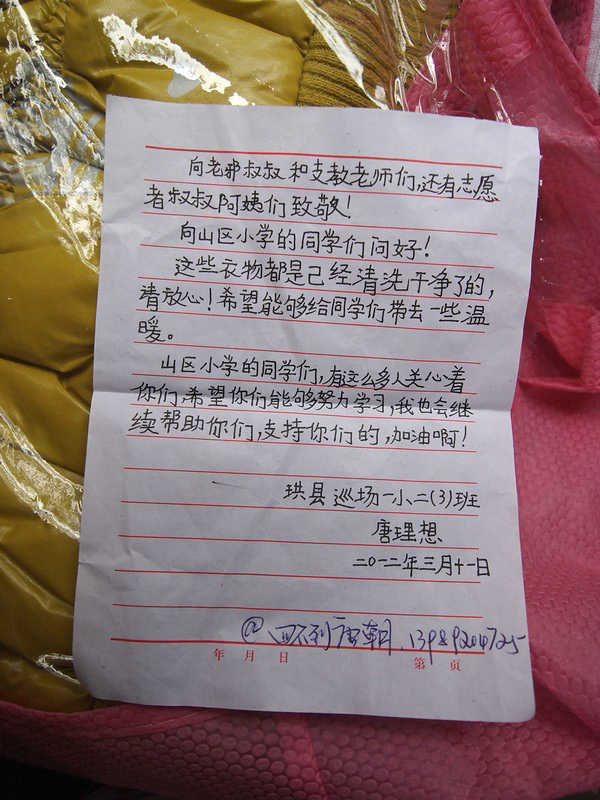 向老邪叔叔和支教老师们,还有志愿
者叔叔阿姨们致敬!
向山区小学的同学们问好!
这些衣物都是已经清洗干净了的,
请放心!希望能够给同学们带去一些温
暖。
山区小学的同学们,有这么多人关心着
你们,希望你们能够努力学习,我也会继
续帮助你们,支持你们的,加油啊!
珙县巡场一小二(3)班
唐理想
二〇一二年三月十一日
@回不到唐朝.
年 月 日
第 页